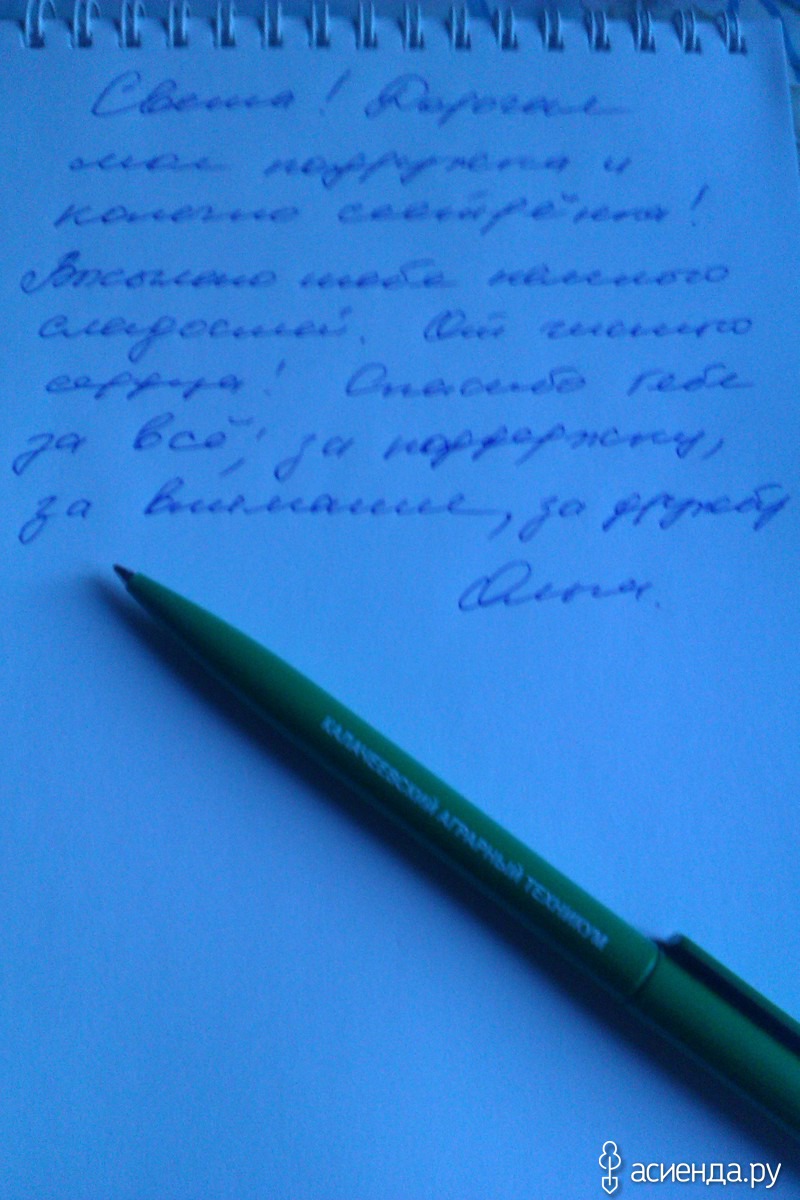 Света! Дорогая
моя подружка и
конечно сестрёнка!
Высылаю тебе немного
сладостей. От чистого
сердца! Спасибо тебе
за всё; за поддержку,
за внимание, за дружбу
Ольга.
КАЛАЧЕЕВСКИЙ АГРАРНЫЙ ТЕХНИКУМ
асиенда.ру